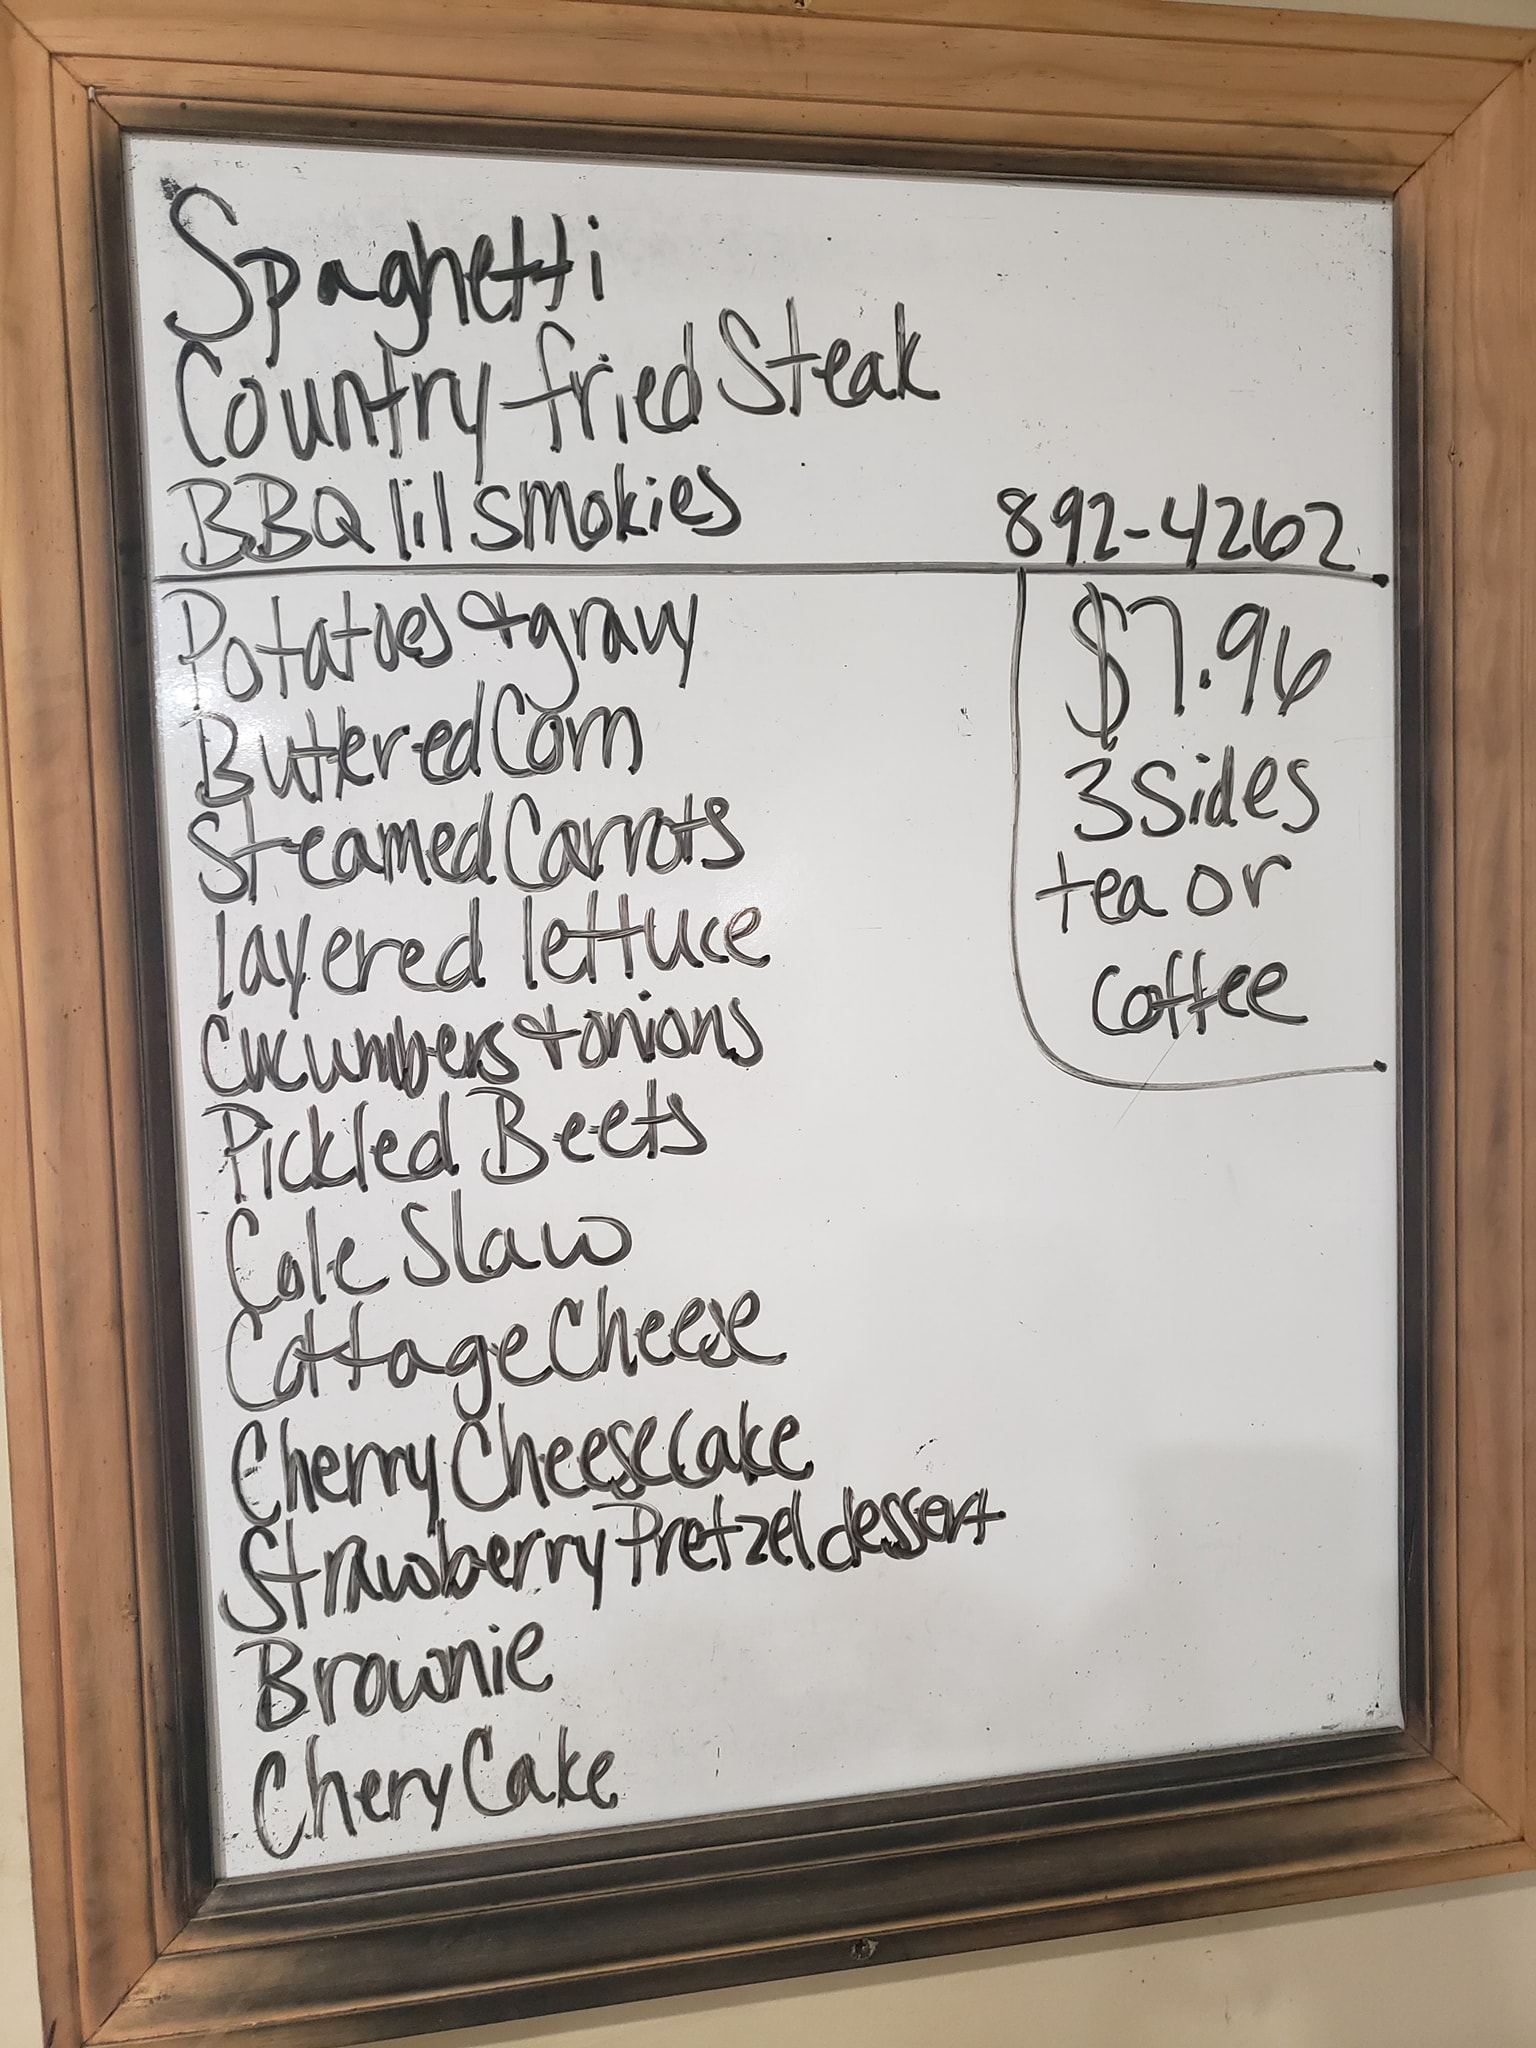 Spaghetti
Country fried Steak
BBQ lil smokies
892-4262
Potatoes & gravy
Buttered Corn
Steamed Carrots
layered lettuce
Cucumbers & onions
Pickled Beets
Cole Slaw
Cottage Cheese
Cherry Cheesecake
Strawberry Pretzel dessert
Brownie
Chery Cake
$7.96
3 Sides
tea or
Coffee